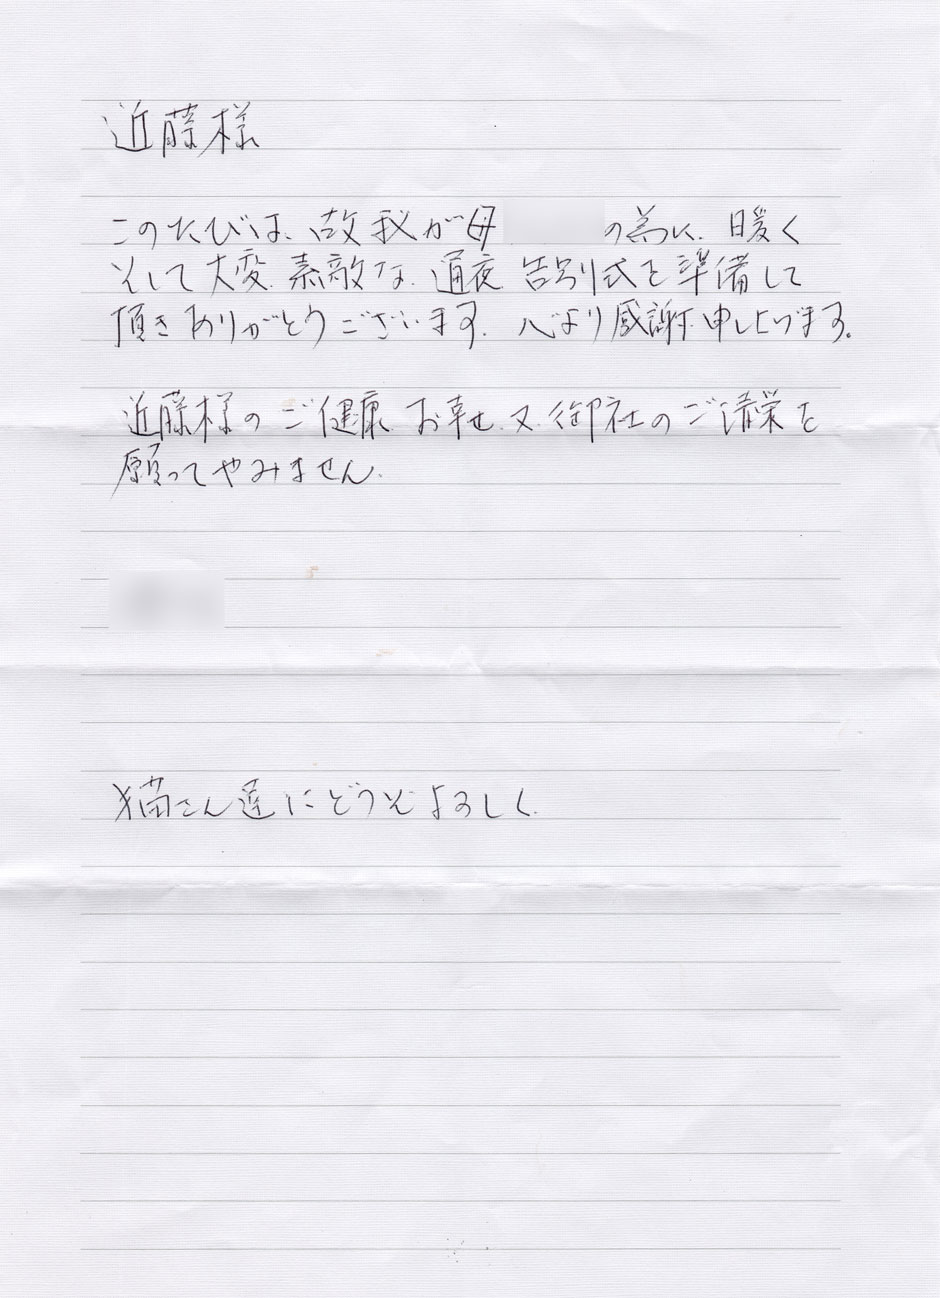 近藤様
このたびは、故 我が母 の為に、暖く
そして大変、素敵な、通夜 告別式を準備して
頂きありがとうございます。心より感謝申し上げます。
近藤様の ご健康、お幸せ、又、御社の ご清栄を
願ってやみません。
猫さん達にどうぞよろしく。